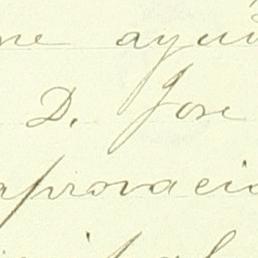 me ayu
D. Jose
aprovacio